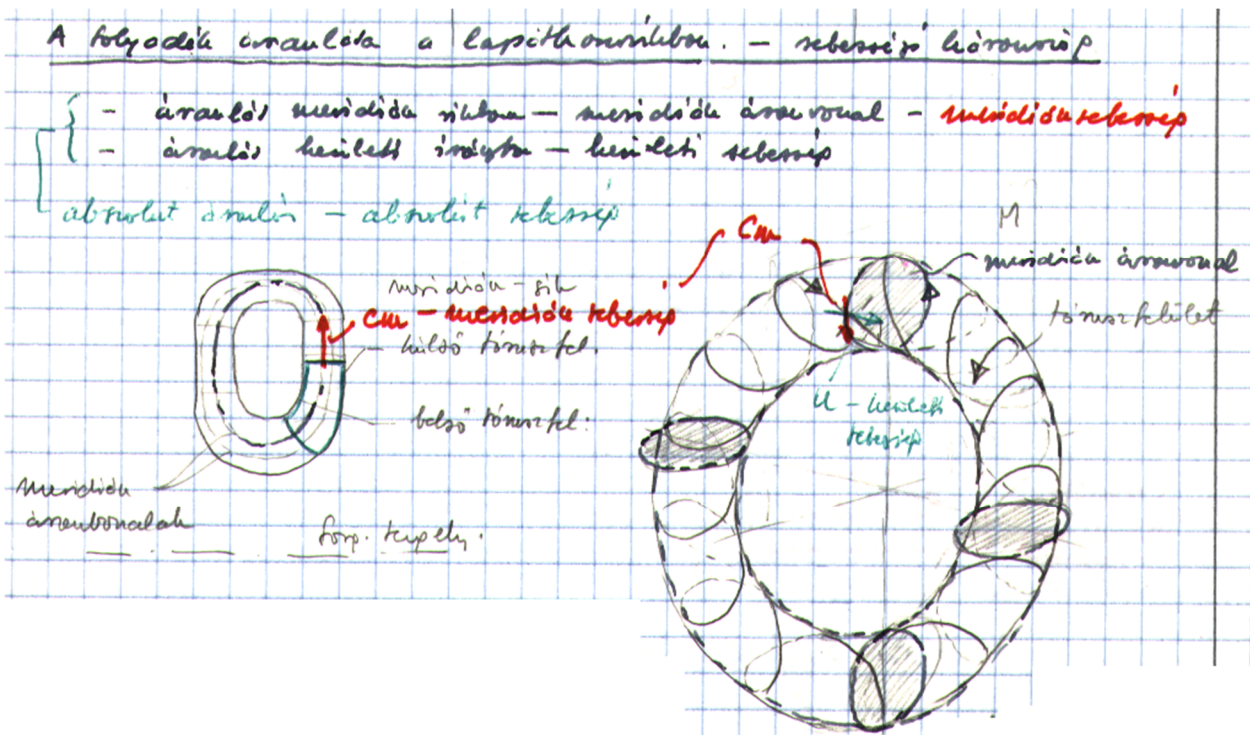 A folyadék áramlása a lapátkoszorúkban. – sebességi háromszög
- áramlás meridián síkban – meridián áramvonal – meridiánsebesség
- áramlás kerületi irányba – kerületi sebesség
absolut áramlás – absolút sebesség
M
cm
meridián áramvonal
meridián-sík
cm – meridián sebesség
tóruszfelület
külső tóruszfel.
u – kerületi
sebesség
belső tóruszfel.
meridián
áramvonalak
forg. tengely.